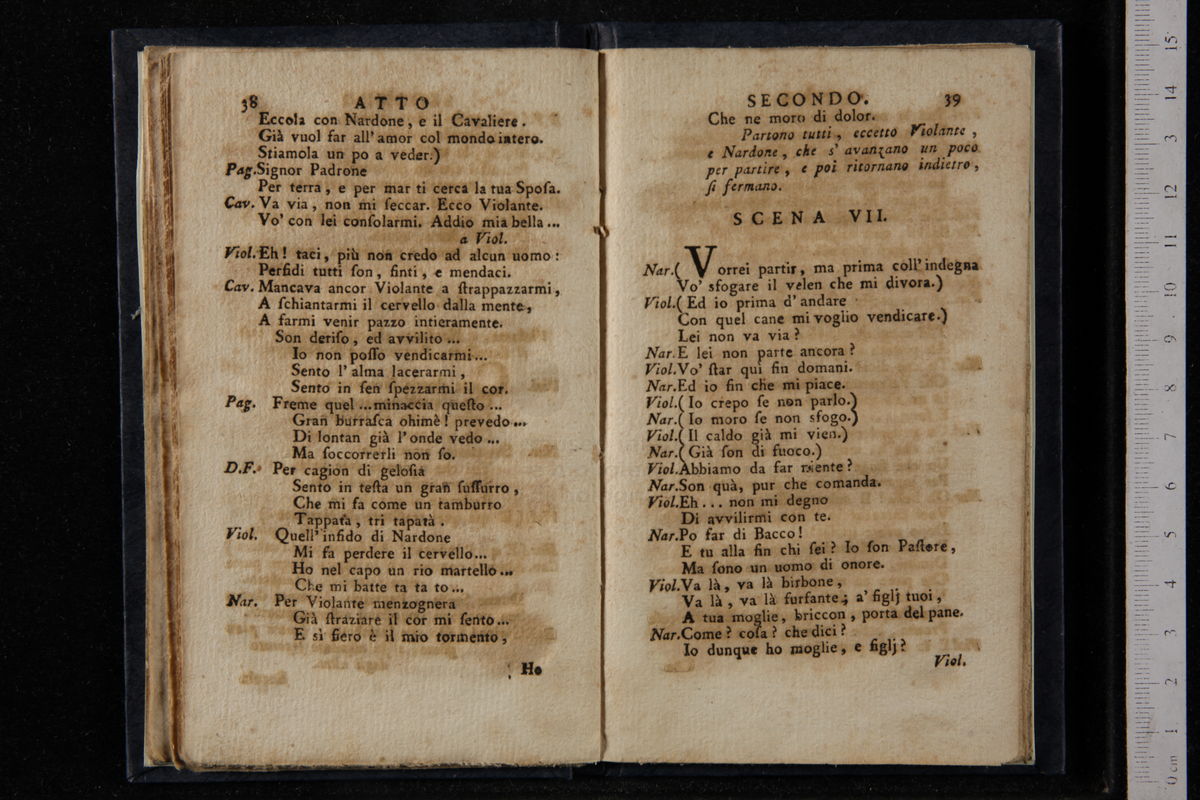 38 ATTO
Eccola con Nardone, e il Cavaliere.
Già vuol far all'amor col mondo intero.
Stiamola un po a veder.)
Pag. Signor Padrone
Per terra, e per mar ti cerca la tua Sposa.
Cav. Va via, non mi seccar. Ecco Violante.
Vo' con lei consolarmi. Addio mia bella ...
a Viol.
Viol. Eh! taci, più non credo ad alcun uomo:
Perfidi tutti son, finti, e mendaci.
Cav. Mancava ancor Violante a strappazzarmi,
A schiantarmi il cervello dalla mente,
A farmi venir pazzo intieramente.
Son deriso, ed avvilito ...
Io non posso vendicarmi ...
Sento l'alma lacerarmi,
Sento in sen spezzarmi il cor.
Pag. Freme quel ... minaccia questo ...
Gran burrasca ohimè! prevedo ...
Di lontan già l'onde vedo ...
Ma soccorrerli non so.
D.F. Per cagion di gelosia
Sento in testa un gran sussurro,
Che mi fa come un tamburro
Tappata, tri tapatà.
Viol. Quell'infido di Nardone
Mi fa perdere il cervello ...
Ho nel capo un rio martello ...
Che mi batte ta ta to ...
Nar. Per Violante menzognera
Già straziare il cor mi sento ...
E sì fiero è il mio tormento,
Ho
SECONDO. 39
Che ne moro di dolor.
Partono tutti, eccetto Violante,
e Nardone, che s' avanzano un poco
per partire, e poi ritornano indietro,
si fermano.
SCENA VII.
Nar. ( Vorrei partir, ma prima coll'indegna
Vo' sfogare il velen che mi divora.)
Viol. ( Ed io prima d'andare
Con quel cane mi voglio vendicare.)
Lei non va via?
Nar. E lei non parte ancora?
Viol. Vo' star qui fin domani.
Nar. Ed io fin che mi piace.
Viol. ( Io crepo se non parlo.)
Nar. ( Io moro se non sfogo.)
Viol. ( Il caldo già mi vien.)
Nar. ( Già son di fuoco.)
Viol. Abbiamo da far niente?
Nar. Son quà, pur che comanda.
Viol. Eh ... non mi degno
Di avvilirmi con te.
Nar. Po far di Bacco!
E tu alla fin chi sei? Io son Pastore,
Ma sono un uomo di onore.
Viol. Va là, va là birbone,
Va là, va là furfante; a' figlj tuoi,
A tua moglie, briccon, porta del pane.
Nar. Come? cosa? che dici?
Io dunque ho moglie, e figlj?
Viol.
0 cm 1 2 3 4 5 6 7 8 9 10 11 12 3 14 15